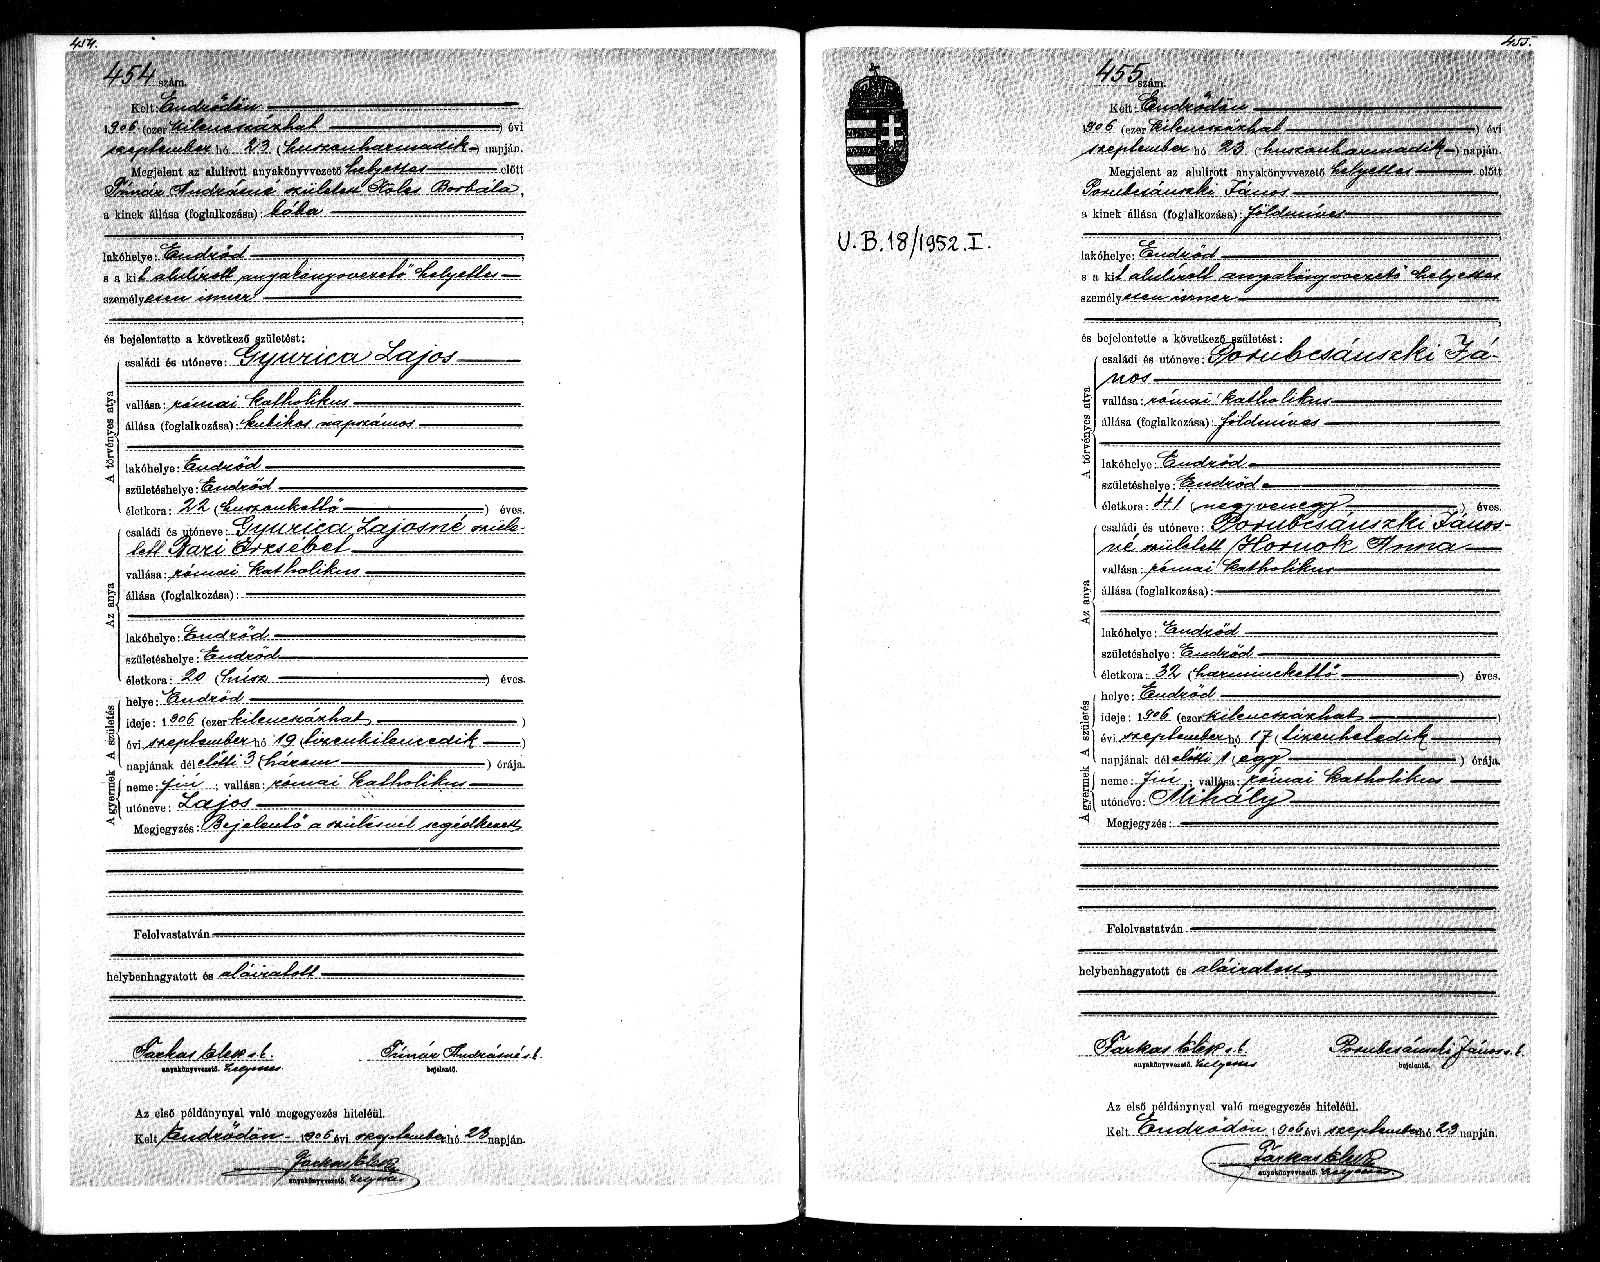 454.
454 szám.
Kelt: Endrődön
1906 (ezer kilencszázhat) évi
szeptember hó 23. (huszonharmadik) napján.
Megjelent az alulirott anyakönyvvezető helyettes előtt
Tímár Andrásné született Borbála,
a kinek állása (foglalkozása): bába
lakóhelye: Endrőd
s a kit alulirott anyakönyvvezető helyettes
személyesen ismer
és bejelentette a következő születést:
A törvényes atya
családi és utóneve: Gyurica Lajos
vallása: római katholikus
állása (foglalkozása): kubikos napszámos
lakóhelye: Endrőd
születéshelye: Endrőd
életkora: 22 (huszonkettő) éves.
Az anya
családi és utóneve: Gyurica Lajosné szüle-
tett Erzsébet
vallása: római katholikus
állása (foglalkozása):
lakóhelye: Endrőd
születéshelye: Endrőd
életkora: 20 (húsz) éves.
A születés
helye: Endrőd
ideje: 1906 (ezer kilencszázhat)
évi szeptember hó 19 (tizenkilencedik)
napjának dél előtti 3 (három) órája.
A gyermek
neme: fiú; vallása: római katholikus
utóneve: Lajos
Megjegyzés: Bejelentő a szülésnél segédkezett
Felolvastatván
helybenhagyatott és aláiratott
Farkas Elek s.k. Tímár Andrásné s.k.
anyakönyvvezető. helyettes bejelentő.
Az első példánynyal való megegyezés hiteléül.
Kelt Endrődön 1906 évi szeptember hó 23 napján.
Farkas Elek
anyakönyvvezető. helyettes
455.
455 szám.
Kelt: Endrődön
1906 (ezer kilencszázhat) évi
szeptember hó 23. (huszonharmadik) napján.
Megjelent az alulirott anyakönyvvezető helyettes előtt
Porubcsánszki János
a kinek állása (foglalkozása): földműves
V.B.18/1952.I.
lakóhelye: Endrőd
s a kit alulirott anyakönyvvezető helyettes
személyesen ismer
és bejelentette a következő születést:
A törvényes atya
családi és utóneve: Porubcsánszki Já-
nos
vallása: római katholikus
állása (foglalkozása): földműves
lakóhelye: Endrőd
születéshelye: Endrőd
életkora: 41 (negyvenegy) éves.
Az anya
családi és utóneve: Porubcsánszki János-
né született Hornok Anna
vallása: római katholikus
állása (foglalkozása):
lakóhelye: Endrőd
születéshelye: Endrőd
életkora: 32 (harminckettő) éves.
A születés
helye: Endrőd
ideje: 1906 (ezer kilencszázhat)
évi szeptember hó 17 (tizenhetedik)
napjának dél előtti 1 (egy) órája.
A gyermek
neme: fiú; vallása: római katholikus
utóneve: Mihály
Megjegyzés:
Felolvastatván
helybenhagyatott és aláiratott
Farkas Elek s.k. Porubcsánszki János s.k.
anyakönyvvezető. helyettes bejelentő.
Az első példánynyal való megegyezés hiteléül.
Kelt. Endrődön 1906 évi szeptember hó 23 napján.
Farkas Elek
anyakönyvvezető. helyettes